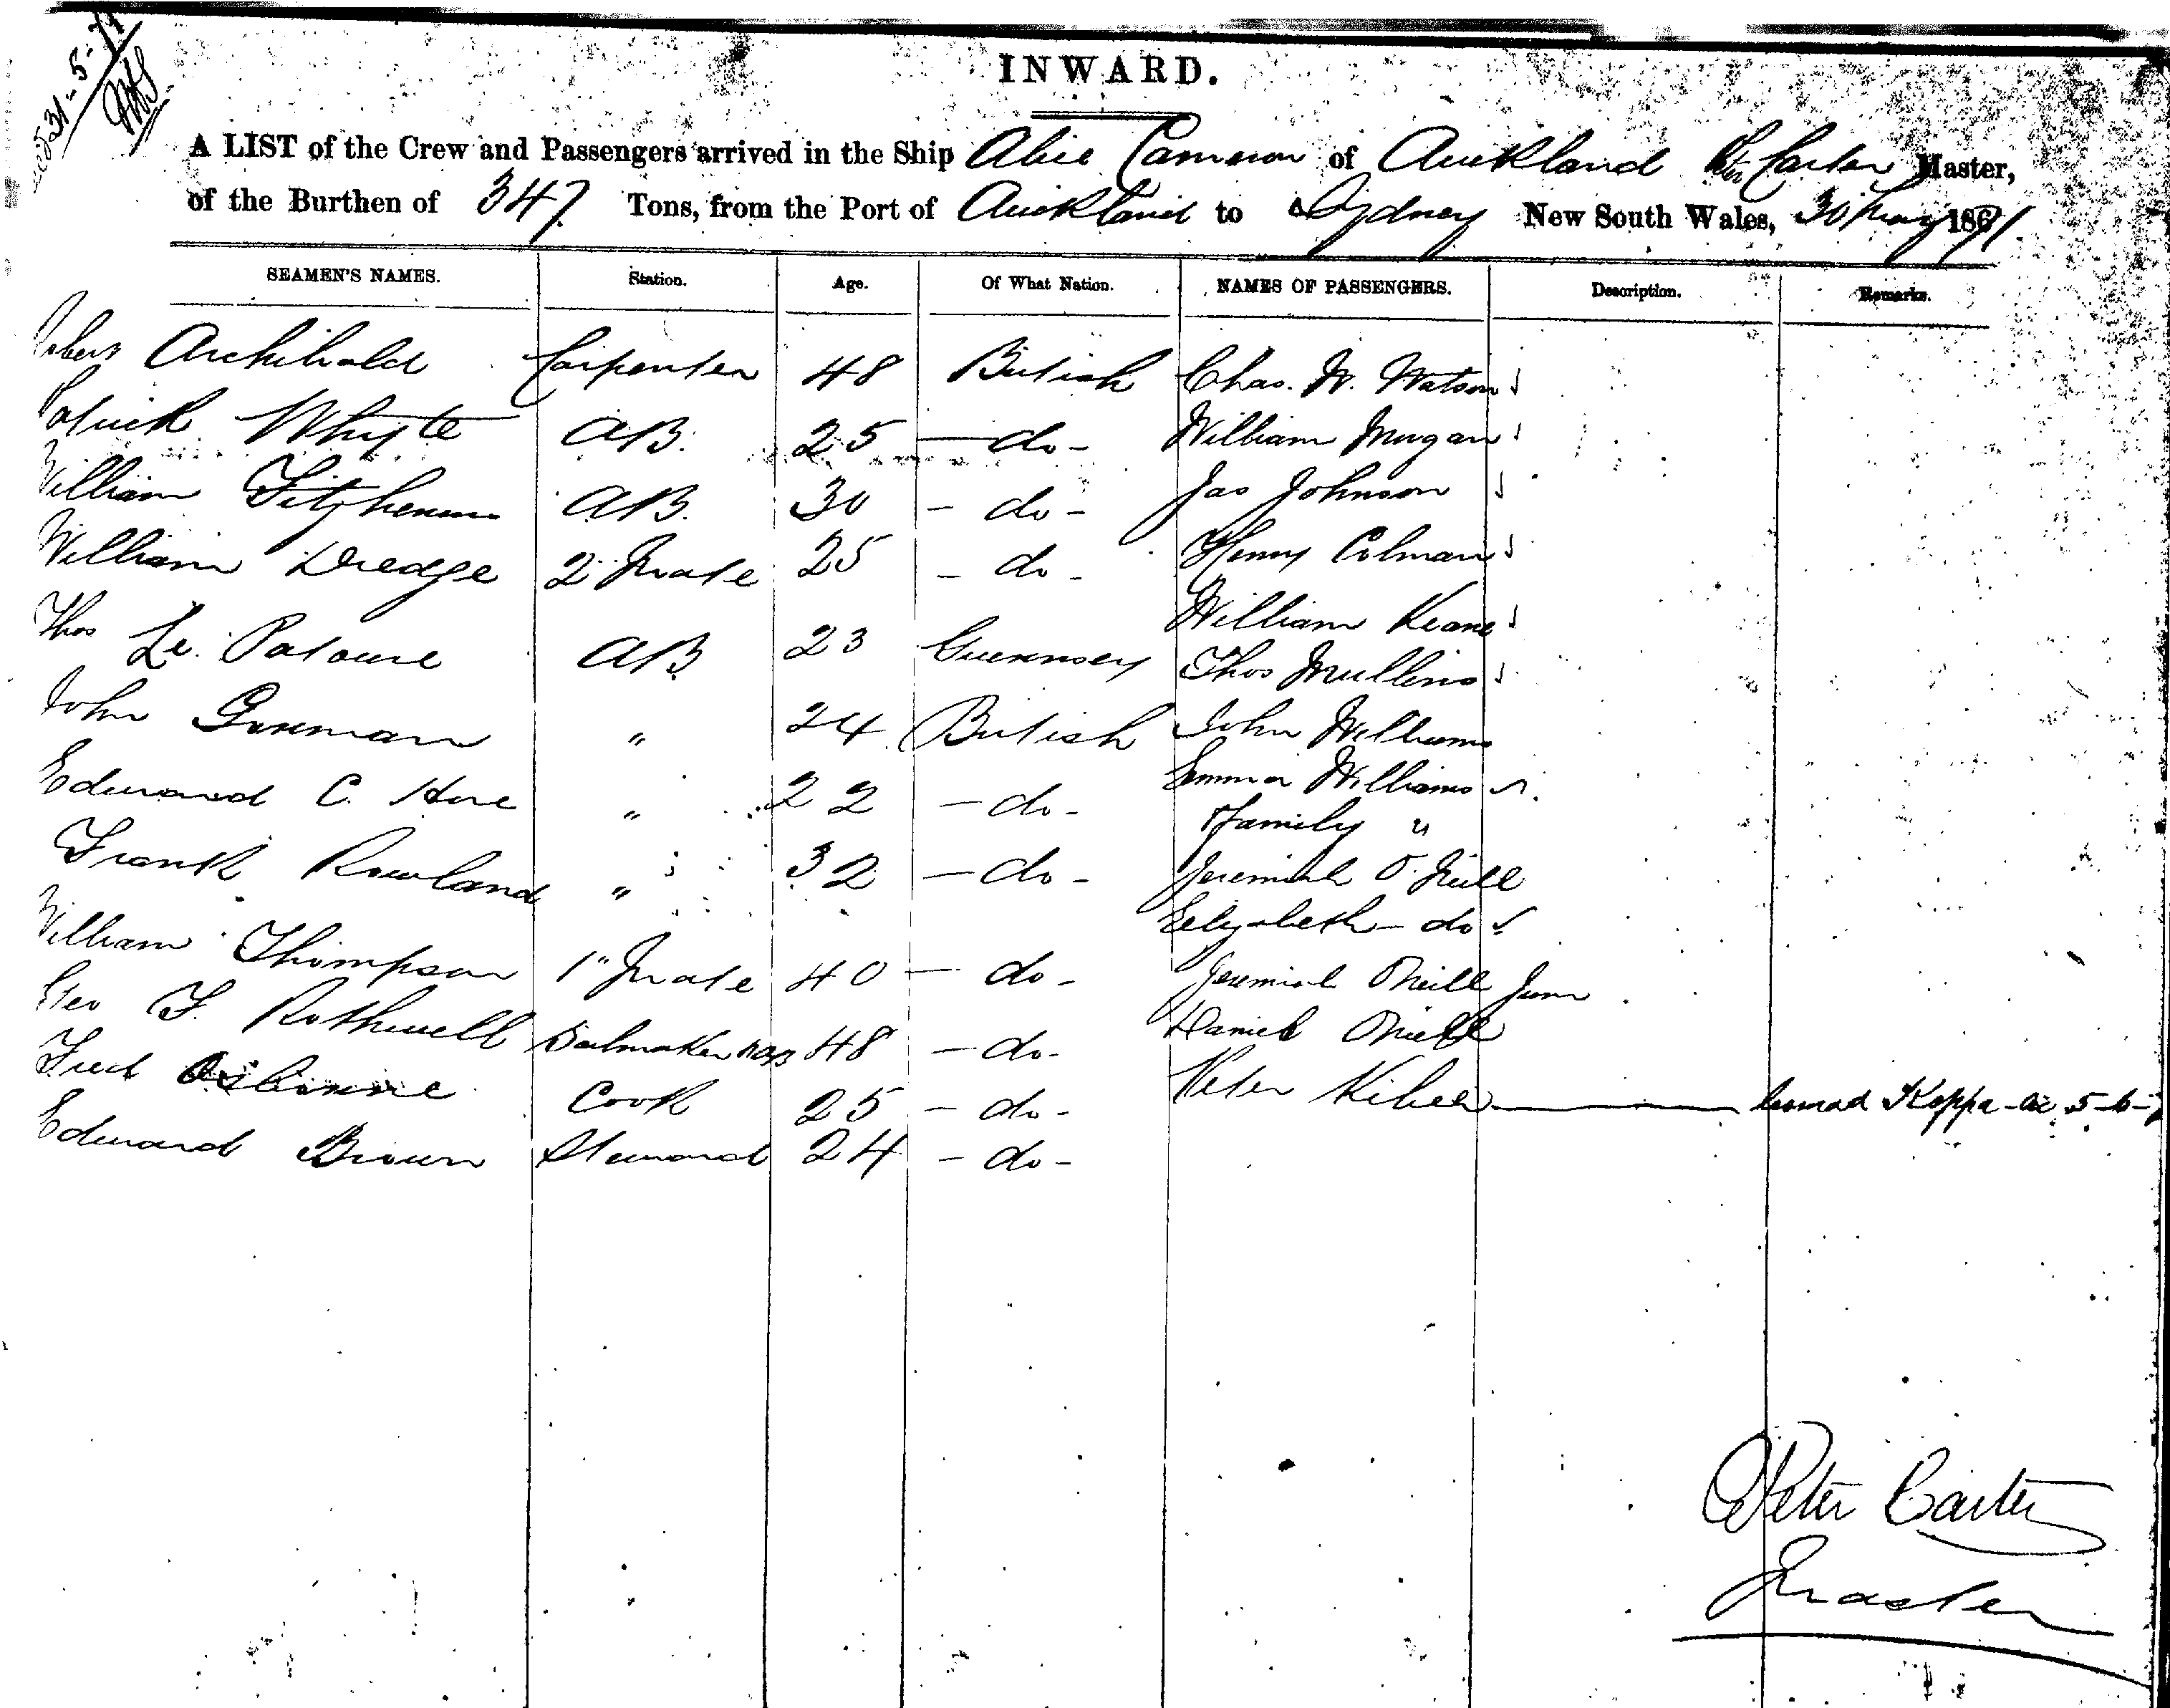 31-5-71
INWARD.
A LIST of the Crew and Passengers arrived in the Ship Alice Cameron of Auckland Peter Carter Master,
of the Burthen of 347 Tons, from the Port of Auckland to Sydney New South Wales, 30 May 1871
SEAMEN'S NAMES. Station. Age. Of What Nation. NAMES OF PASSENGERS. Description. Remarks.
Robert Archibald Carpenter 48 British Chas. W. Watson
Patrick Whyte AB. 25 - do - William Morgan
William AB. 30 - do - Jas Johnson
William Dredge 2 Mate 25 - do - Henry Colman
William Keane
Thos Le. AB 23 Guernsey Thos Mullins
John " 24 British John Williams
Edward C. " 22 - do - Emma Williams
Family "
Frank Rowland " 32 - do - Jeremiah O'Neill
Elizabeth - do
William Thompson 1" Mate 40 - do - Jeremiah O'Neill Junr
Geo F. Rothwell Sailmaker 48 - do - Daniel O'Neill
Fred Osborne Cook 25 - do - Peter
Edward Brown Steward 24 - do -
Peter Carter
Master